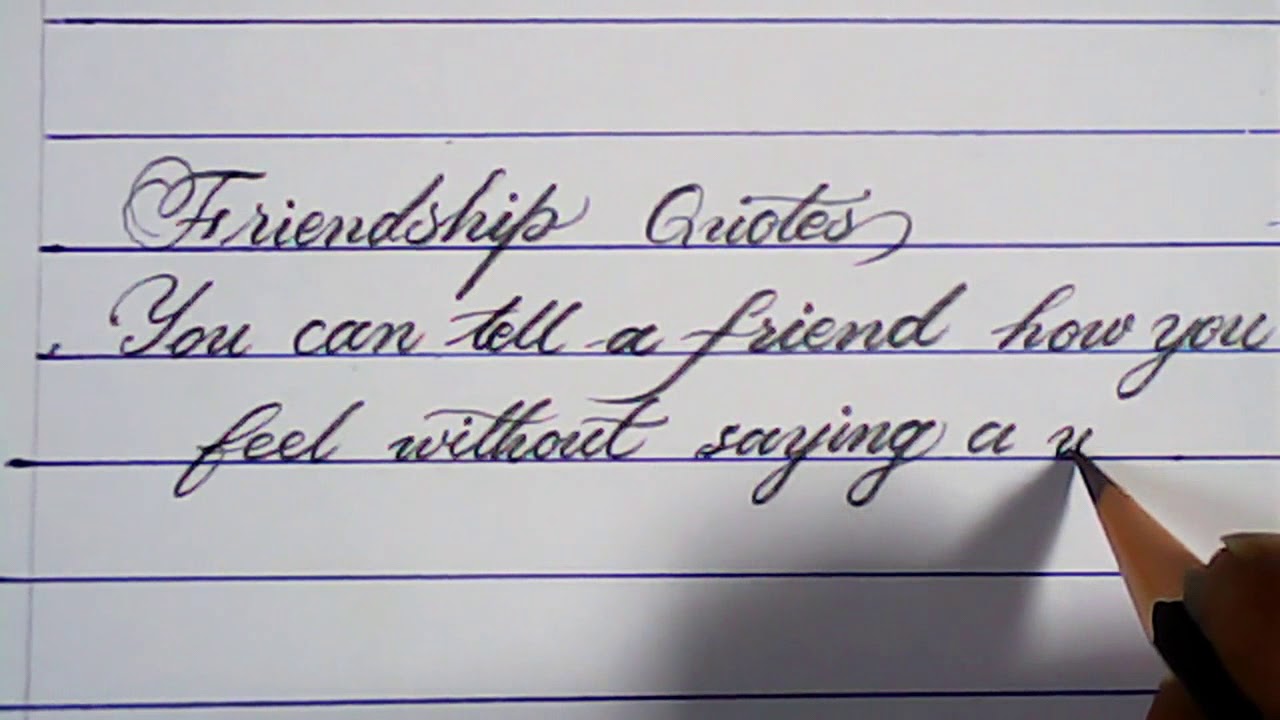 Friendship Quotes
You can tell a friend how you
feel without saying a